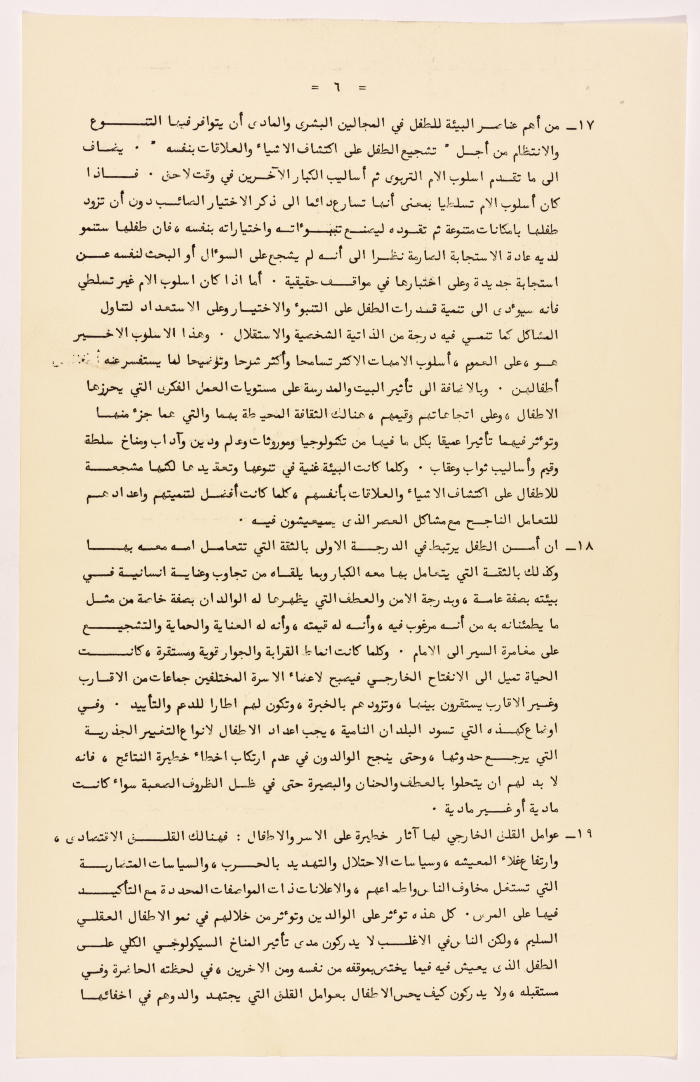 = ٦ =
١٧ـ من أهم عناصر البيئة للطفل في المجالين البشرى والمادى أن يتوافر فيها التنـــوع
والانتظام من أجل " تشجيع الطفل على اكتشاف الاشياء والعلاقات بنفسه " ٠ يضاف
الى ما تقدم اسلوب الام التربوى ثم أساليب الكبار الآخرين في وقت لاحق ٠ فـــاذا
كان أسلوب الام تسلطيا بمعنى أنها تسارع دائما الى ذكر الاختيار الصائب دون أن تزود
طفلها بامكانات متنوعة ثم تقوده ليصنع تنبـوءاته واختياراته بنفسه ، فان طفلها ستنمو
لديه عادة الاستجابة الصارمة نظرا الى أنه لم يشجع على السوءال أو البحث لنفسه عـن
استجابة جديدة وعلى اختبارها في مواقف حقيقية ٠ أما اذا كان اسلوب الام غير تسلطي
فأنه سيوءدى الى تنمية قدرات الطفل على التنبوء والاختيار وعلى الاستعداد لتناول
المشاكل كما تنمي فيه درجة من الذاتية الشخصية والاستقلال ٠ وهذا الاسلوب الاخيـر
هـو ، على العموم ، أسلوب الامهات الاكثر تسامحا وأكثر شرحا وتوضيحا لما يستفسر عنه
أطفالهن ٠ وبالاضافة الى تأثير البيت والمدرسة على مستويات العمل الفكرى التي يحرزها
الاطفال ، وعلى اتجاهاتهم وقيمهم ، هنالك الثقافة المحيطة بهما والتي هما جزء منهـا
وتوءثر فيهما تأثيرا عميقا بكل ما فيها من تكنولوجيا وموروثات وعلم ودين وآداب ومناخ سلطة
وقيم وأساليب ثواب وعقاب ٠ وكلما كانت البيئة غنية في تنوعها وتعقيدها لكنها مشجعـة
للاطفال على اكتشاف الاشياء والعلاقات بأنفسهم ، كلما كانت أفضل لتنميتهم واعدادهـم
للتعامل الناجح مع مشاكل العصر الذى يسيعيشون فيـه ٠
١٨ـ ان أمـن الطفل يرتبط في الدرجـة الاولى بالثقة التي تتعامـل امه معـه بهـــا
وكذلك بالثقة التي يتعامل بها معه الكبار وبما يلقاه من تجاوب وعناية انسانية فــي
بيئته بصفة عامـة ، وبدرجة الامن والعطف التي يظهرها له الوالدان بصفة خاصة من مثـل
ما يطمئنانه به من أنـه مرغوب فيه ، وأنـه له قيمته ، وأنه له العناية والحماية والتشجيــع
على مغامرة السير الى الامام ٠ وكلما كانت انماط القرابة والجوار قوية ومستقرة ، كانـــت
الحياة تميل الى الانفتاح الخارجـي فيصبح لاعضاء الاسرة المختلفين جماعات من الاقـارب
وغـير الاقارب يستقرون بينهـا ، وتزودهم بالخبرة ، وتكون لهم اطارا للدعم والتأييد ٠ وفـي
اوضاع كهـذه التي تسود البلدان النامية ، يجب اعداد الاطفال لانواع التغيير الجذريـة
التي يرجـع حدوثها ، وحتى ينجح الوالدون في عدم ارتكاب اخطاء خطيرة النتائج ، فانه
لا بد لهم ان يتحلوا بالعطف والحنان والبصيرة حتى في ظـل الظروف الصعبة سواء كانـت
مادية أو غـير مادية ٠
١٩ـ عوامل القلق الخارجي لها آثار خطيرة على الاسر والاطفال : فهنالك القلـق الاقتصادى ،
وارتفاع غلاء المعيشه ، وسياسات الاحتلال والتهديد بالحـرب ، والسياسات المتضاربـة
التي تستغل مخاوف الناس واطماعهم ، والاعلانات ذات المواصفات المحددة مع التأكيــد
فيها على المرس ٠ كل هذه توءثر على الوالدين وتوءثر من خلالهم في نمو الاطفال العقلـي
السليم ، ولكن الناس في الاغلـب لا يدركون مدى تأثير المناخ السيكولوجـي الكلي علـى
الطفل الذى يعيش فيه فيما يختص بموقفه من نفسه ومن الاخرين ، في لحظته الحاضرة وفـي
مستقبله ، ولا يدركون كيف يحس الاطفال بعوامل القلق التي يجتهد والدوهم في اخفائهـا